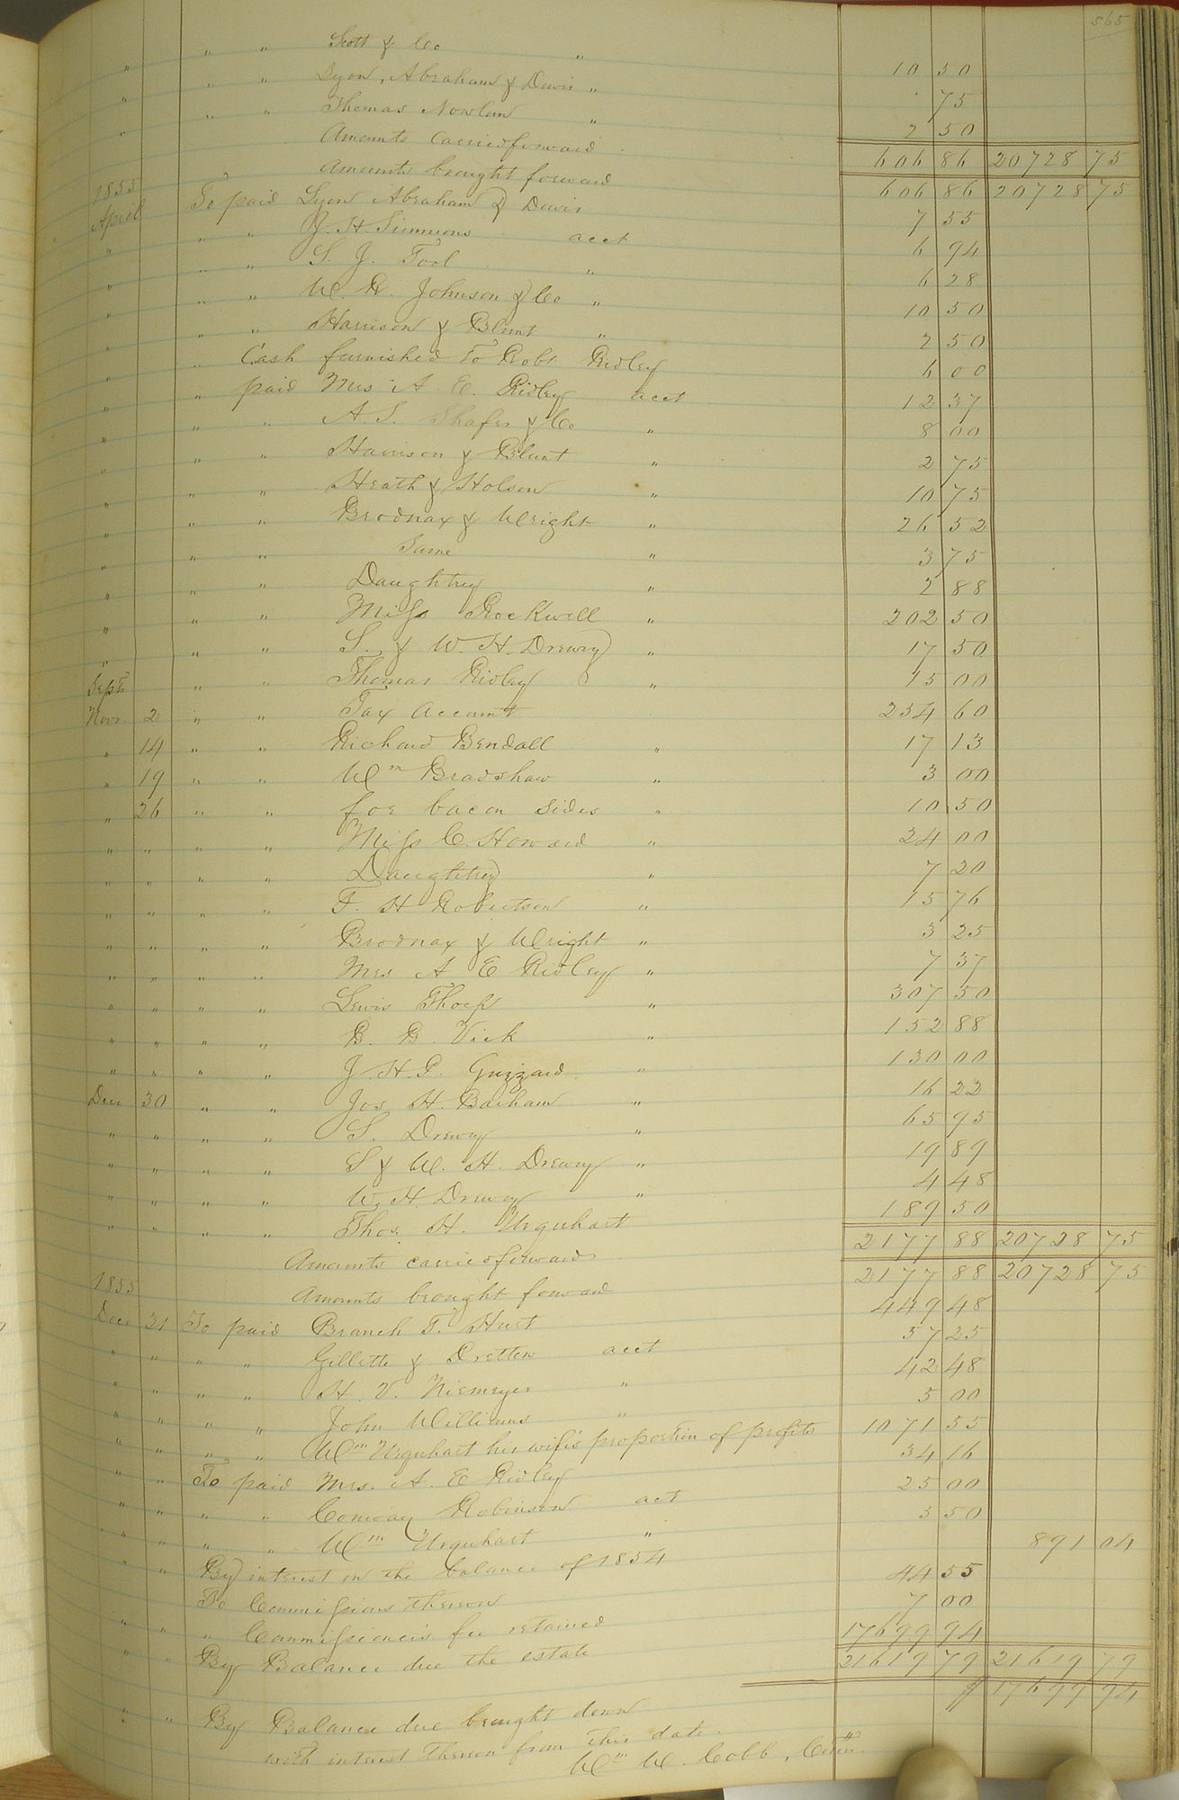 565
" " " Scott & Co " 10 50
" " " Lyon, Abraham & Davis " 75
" " " Thomas Nowlan " 2 50
Amounts carried forward 606 86 20728 75
Amounts brought forward 606 86 20728 75
1855 April To paid Lyon Abraham & Davis 7 55
" " " J. H. Simmons acct 6 94
" " " S. J. Tool " 6 28
" " " W. G. Johnson & Co " 10 50
" " " Harrison & Blunt " 2 50
" " Cash furnished to Robt Ridley 6 00
" " paid Mrs A E. Ridley acct 12 37
" " " A. S. Shafer & Co " 8 00
" " " Harrison & Blunt " 2 75
" " " Heath & Holson " 10 75
" " " Brodnax & Wright " 26 52
" " " Same " 3 75
" " " Daughtrey " 2 88
" " " Miss Rockwell " 202 50
" " " S. & W. H. Drewry " 17 50
Sept " " Thomas Ridley " 15 00
Novr 2 " " Tax account 254 60
" 14 " " Richard Bendall " 17 13
" 19 " " Wm Bradshaw " 3 00
" 26 " " for bacon sides " 10 50
" " " " Miss C. Howard " 24 00
" " " " Daughtrey " 7 20
" " " " F. H Robertson " 15 76
" " " " Brodnax & Wright " 3 25
" " " " Mrs A E Ridley " 7 37
" " " " Lewis Thorp " 307 50
" " " " B. B. Vick " 152 88
" " " " J. H. G. Guzzard " 130 00
Dec 30 " " Jos H. Barham " 16 22
" " " " S. Drewry " 65 95
" " " " S & W. H. Drewry " 19 89
" " " " W. H. Drewry " 4 48
" " " " Thos H. Urquhart 189 50
Amounts carried forward 2177 88 20728 75
Amounts brought forward 2177 88 20728 75
1855 Dec 31 To paid Branch T. Hurt 449 48
" " " " Gillette & Dretten acct 57 25
" " " " H. V. Niemeyer " 42 48
" " " " John Williams " 5 00
" " " " Wm Urquhart his wife's proportion of profits 1071 55
" " To paid Mrs. A. E Ridley 34 16
" " " " Conway Robinson act 25 00
" " " " Wm Urquhart " 3 50
" " By interest on the balance of 1854 891 04
To Commissions thereon 44 55
" " " Commissioner's fee retained 7 00
" " By Balance due the estate 17699 94
21619 79 21619 79
" " By Balance due brought down $ 17699 94
with interest thereon from this date.
Wm W. Cobb, Comr.